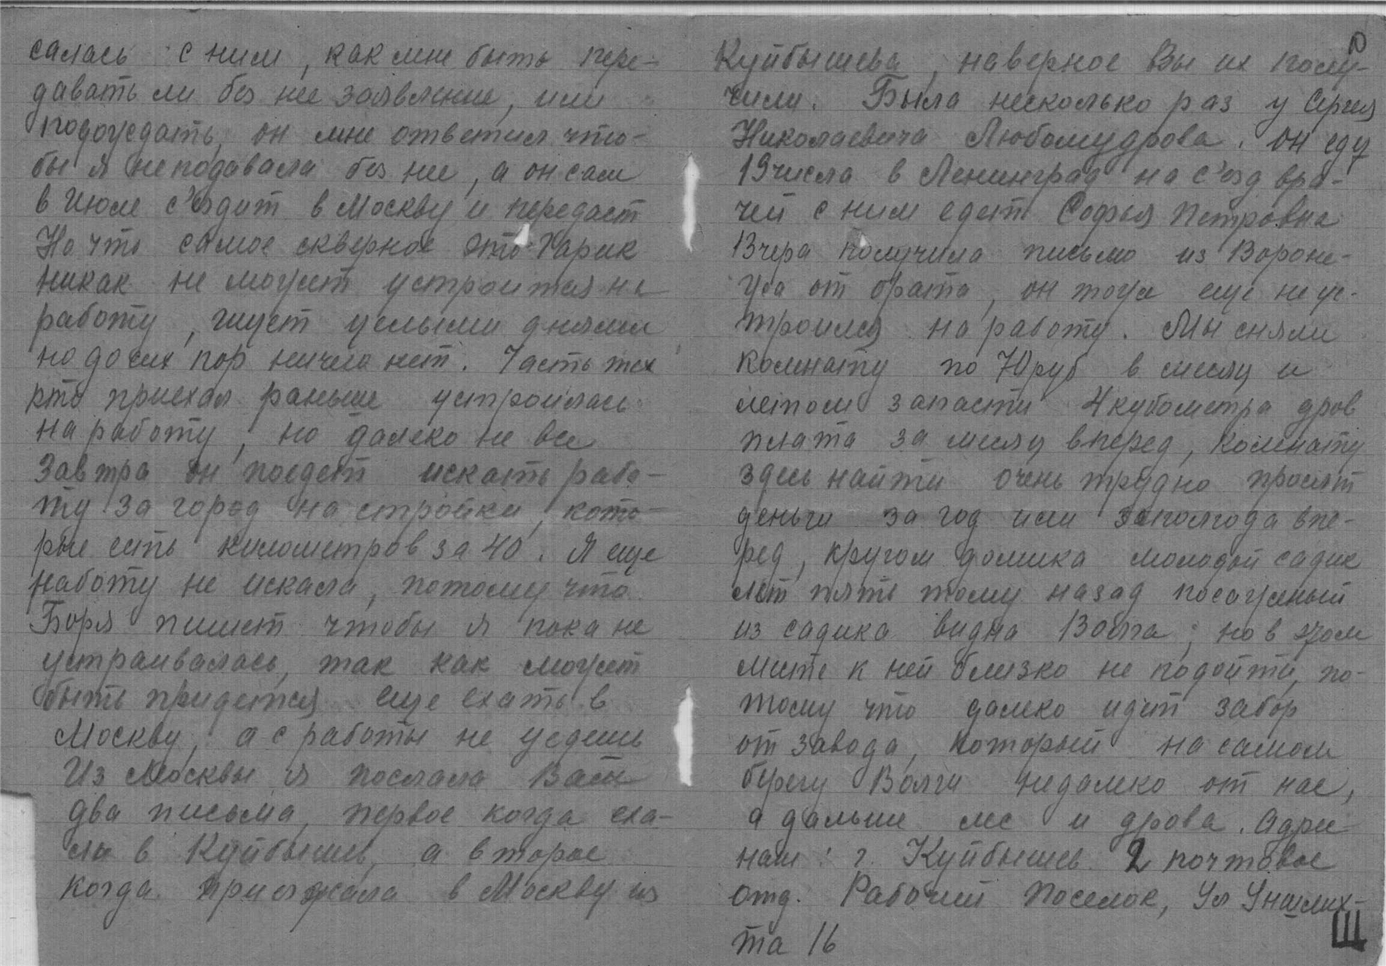 салась с ним, как мне быть пере-
давать ли без нее заявление, или
подождать, он мне ответил что-
бы я не подавала без нее, а он сам
в июле съездит в Москву и передаст
Но что самое скверное это Гарик
никак не может устроится на
работу, ищет целыми днями
но до сих пор ничего нет. Часть тех
кто приехал раньше устроилась
на работу, но далеко не все
Завтра он поедет искать рабо-
ту за город на стройки, кото-
рые есть километров за 40. Я еще
работу не искала, потому что
Боря пишет чтобы я пока не
устраивалась, так как может
быть придется еще ехать в
Москву, а с работы не уедешь
Из Москвы я послала Вам
два письма, первое когда еха-
ла в Куйбышев, а второе
когда приезжала в Москву из
Куйбышева, наверное Вы их полу-
чили. Была несколько раз у Сергея
Николаевича Любомудрова. Он едет
19 числа в Ленинград на с'езд вра-
чей с ним едет Софья Петровна
Вчера получила письмо из Вороне-
жа от брата, он тоже еще не ус-
троился на работу. Мы сняли
комнату по 70 руб в месяц и
летом запасти 4 кубометра дров
плата за месяц вперед, комнату
здесь найти очень трудно просят
деньги за год или за полгода впе-
ред, кругом домика молодой садик
лет пять тому назад посаженый
из садика видна Волга, но в этом
месте к ней близко не подойти, по-
тому что далеко идет забор
от завода, который на самом
берегу Волги недалеко от нас,
а дальше лес и дрова. Адрес
наш: г. Куйбышев 2 почтовое
отд. Рабочий поселок, Ул Уншлих-
та 16
Ш